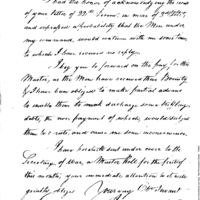 I had the honor of acknowledging the receipt
of your letter of 22nd in mine of
and expressed the probability that the Men under
my command would continue on some time
to which I have received no reply.
I beg you to forward on the pay for this
Muster, as the Men have received their Bounty
& I have been obliged to make partial advances
to enable them to discharge some trifling
debts, the non payment of which would subject
them to and cause me some inconvenience.
I have forwarded under cover to the
Secretary at War, a Muster Roll for the period of
this month, your immediate attention to which will
greatly oblige
Servant